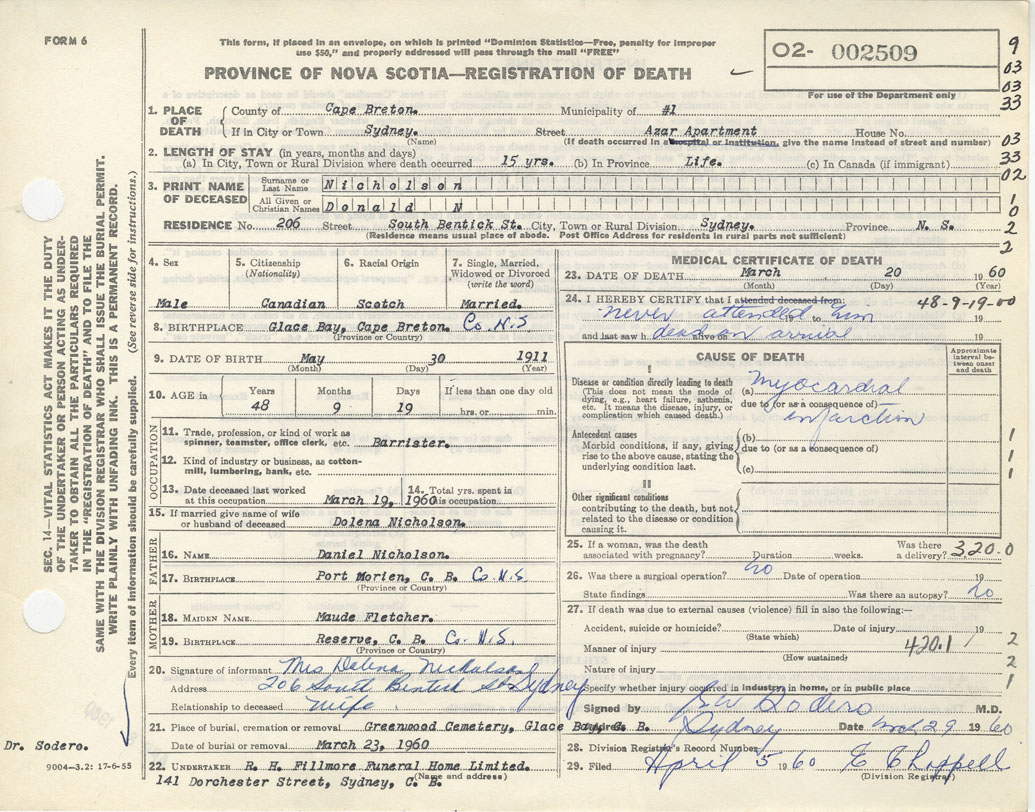 FORM 6
This form, if placed in an envelope, on which is printed "Dominion Statistics—Free, penalty for improper
use $50," and properly addressed will pass through the mail "FREE"
PROVINCE OF NOVA SCOTIA—REGISTRATION OF DEATH
02- 002509
For use of the Department only
9
03
03
33
03
33
02
1
0
2
2
1. PLACE OF DEATH
County of Cape Breton. Municipality of #1
If in City or Town Sydney. Street Azar Apartment House No.
(Name) (If death occurred in a hospital or institution, give the name instead of street and number)
2. LENGTH OF STAY (in years, months and days)
(a) In City, Town or Rural Division where death occurred 15 yrs. (b) In Province Life. (c) In Canada (if immigrant)
3. PRINT NAME OF DECEASED
Surname or Last Name Nicholson
All Given or Christian Names Donald N
RESIDENCE No. 206 Street South Bentick St. City, Town or Rural Division Sydney. Province N. S.
(Residence means usual place of abode. Post Office Address for residents in rural parts not sufficient)
4. Sex 5. Citizenship (Nationality) 6. Racial Origin 7. Single, Married, Widowed or Divorced (write the word)
Male Canadian Scotch Married.
8. BIRTHPLACE Glace Bay, Cape Breton. Co. N.S
(Province or Country)
9. DATE OF BIRTH May 30 1911
(Month) (Day) (Year)
10. AGE in Years Months Days If less than one day old
48 9 19 hrs. or min.
OCCUPATION
11. Trade, profession, or kind of work as
spinner, teamster, office clerk, etc. Barrister.
12. Kind of industry or business, as cotton-
mill, lumbering, bank, etc.
13. Date deceased last worked
at this occupation March 19, 1960
14. Total yrs. spent in
this occupation.
15. If married give name of wife
or husband of deceased Dolena Nicholson.
FATHER
16. NAME Daniel Nicholson.
17. BIRTHPLACE Port Morien, C. B. Co. N.S
(Province or Country)
MOTHER
18. MAIDEN NAME Maude Fletcher.
19. BIRTHPLACE Reserve, C. B. Co. N.S.
(Province or Country)
20. Signature of informant Mrs Dolena Nicholson
Address 206 South Bentick St Sydney
Relationship to deceased Wife
21. Place of burial, cremation or removal Greenwood Cemetery, Glace Bay, C. B.
Date of burial or removal March 23, 1960
22. UNDERTAKER R. H. Fillmore Funeral Home Limited.
(Name and address)
141 Dorchester Street, Sydney, C. B.
MEDICAL CERTIFICATE OF DEATH
23. DATE OF DEATH March 20 1960
(Month) (Day) (Year)
24. I HEREBY CERTIFY that I attended deceased from: 48-9-19-00
never attended him
19 to 19
and last saw h alive on 19
dead on arrival
CAUSE OF DEATH
Approximate interval between onset and death
I
Disease or condition directly leading to death
(This does not mean the mode of
dying, e.g., heart failure, asthenia,
etc. It means the disease, injury, or
complication which caused death.)
(a) myocardial
due to (or as a consequence of)
infarction
Antecedent causes
Morbid conditions, if any, giving
rise to the above cause, stating the
underlying condition last.
(b)
due to (or as a consequence of)
(c)
1
1
1
II
Other significant conditions
contributing to the death, but not
related to the disease or condition
causing it.
25. If a woman, was the death
associated with pregnancy? Duration weeks. Was there
a delivery? 320.0
26. Was there a surgical operation? no Date of operation 19
State findings Was there an autopsy? no
27. If death was due to external causes (violence) fill in also the following:—
Accident, suicide or homicide? Date of injury 19
(State which)
Manner of injury 420.1
(How sustained)
Nature of injury
Specify whether injury occurred in industry, in home, or in public place
2
2
1
Signed by SW Sodero M.D.
Address Sydney Date Mch 29 1960
28. Division Registrar's Record Number
29. Filed April 5 1960 E Chappell
(Division Registrar)
SEC. 14—VITAL STATISTICS ACT MAKES IT THE DUTY
OF THE UNDERTAKER OR PERSON ACTING AS UNDER-
TAKER TO OBTAIN ALL THE PARTICULARS REQUIRED
IN THE "REGISTRATION OF DEATH" AND TO FILE THE
SAME WITH THE DIVISION REGISTRAR WHO SHALL ISSUE THE BURIAL PERMIT.
WRITE PLAINLY WITH UNFADING INK. THIS IS A PERMANENT RECORD.
Every item of information should be carefully supplied. (See reverse side for instructions.)
Dr. Sodero.
9004—3.2: 17-6-55